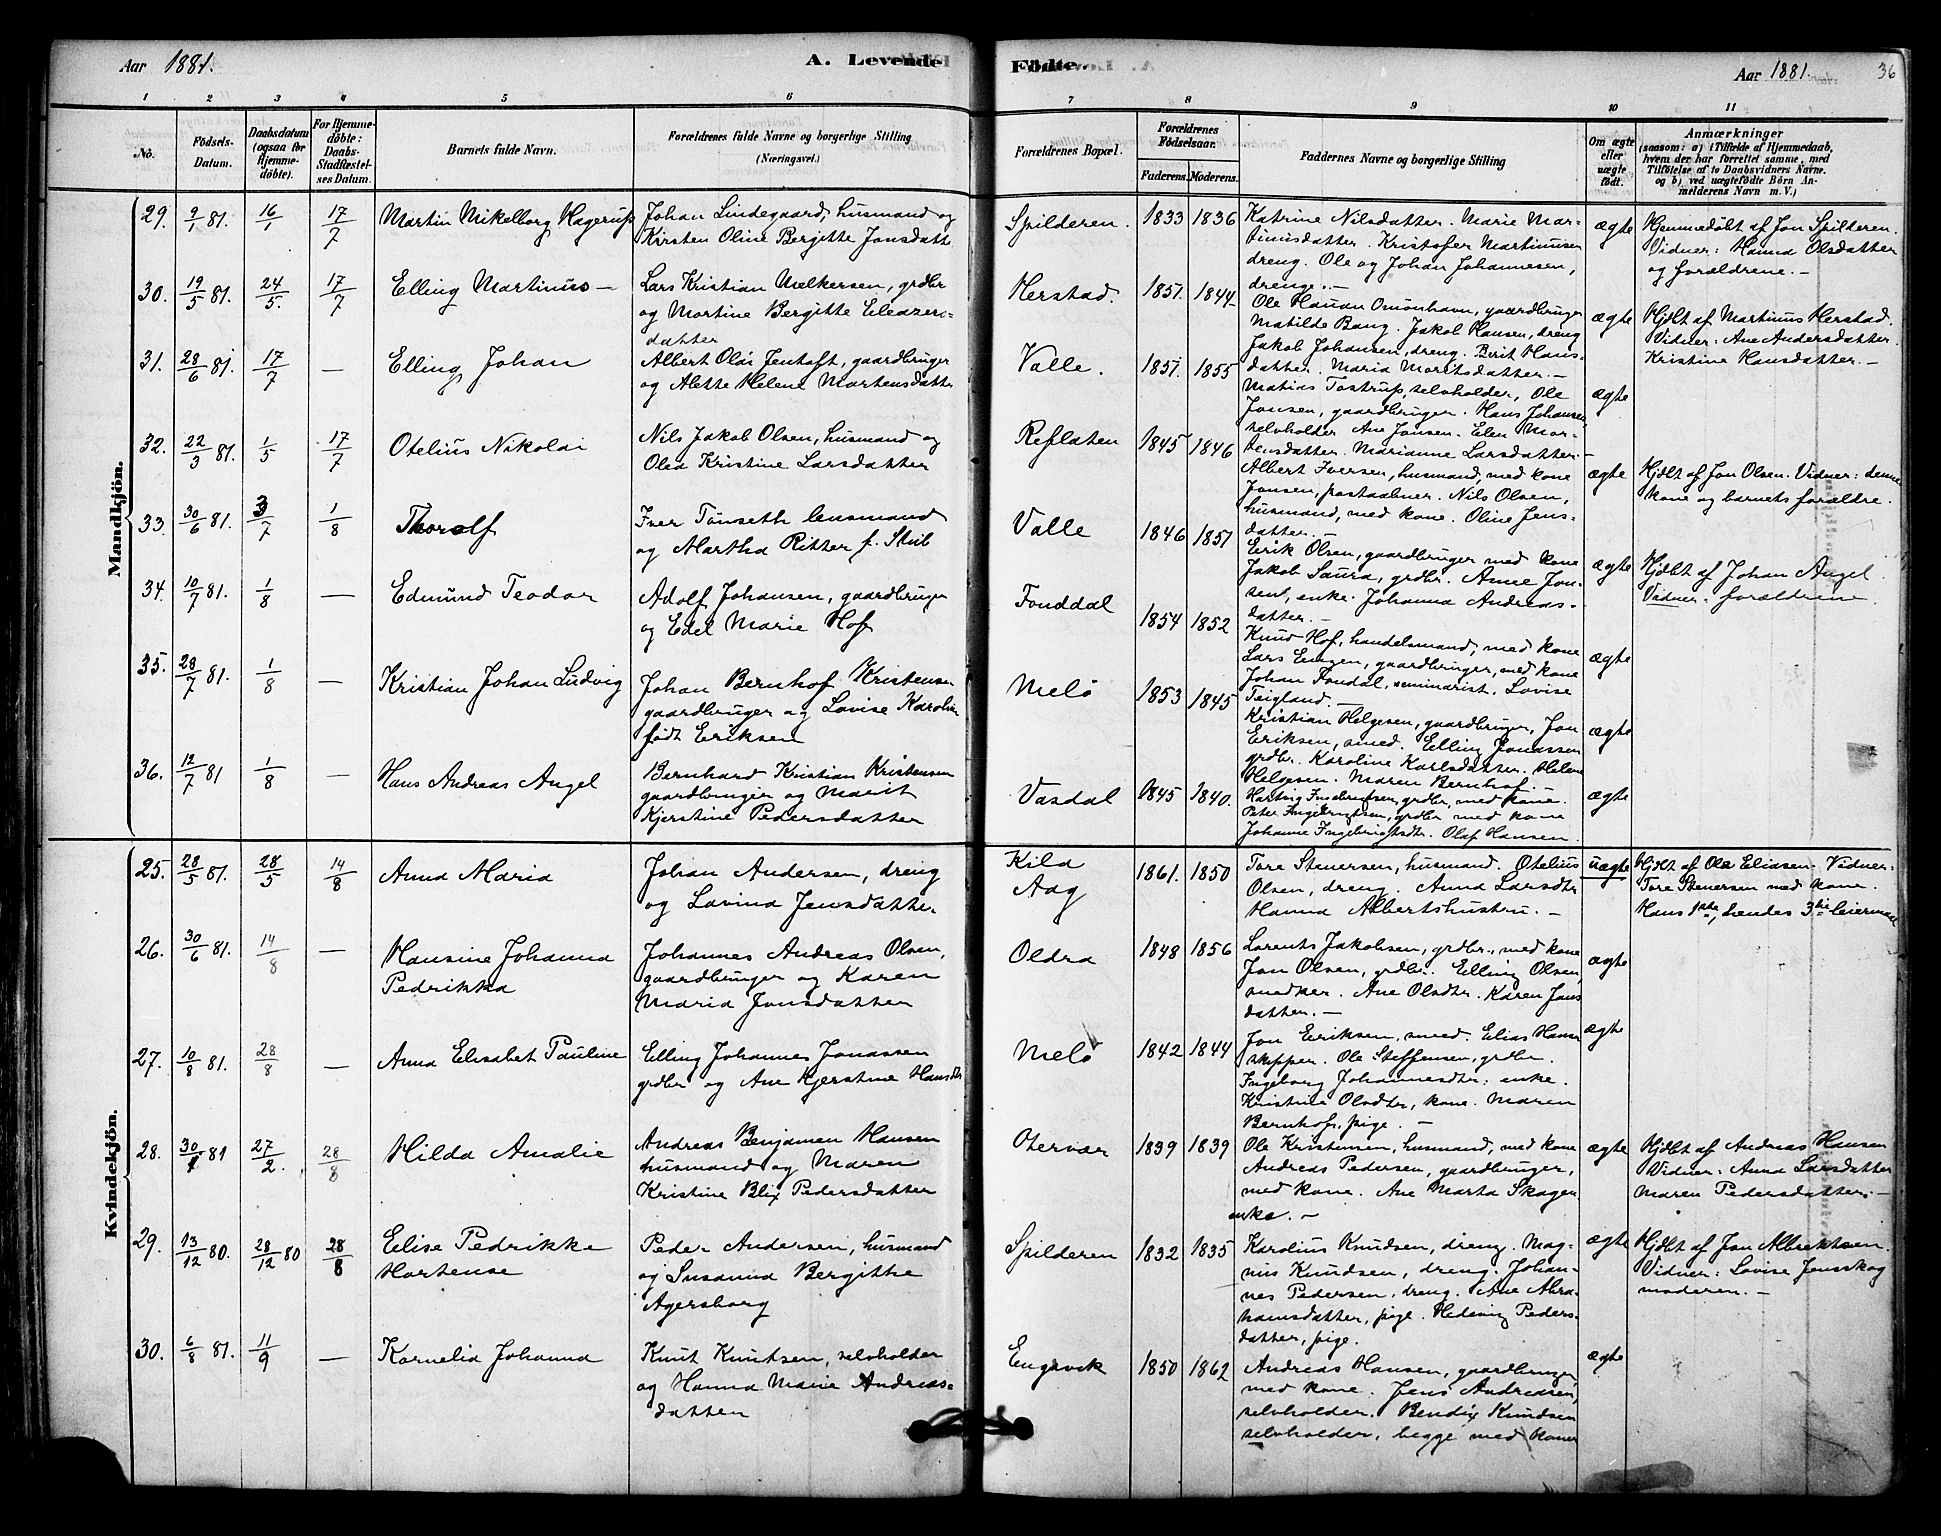 Aar 1881.
A. Levende
Födte.
Aar 1881.
36
1 2 3 4 5 6 7 8 9 10 11
No.
Födsels-
Datum.
Daabsdatum
(ogsaa for
Hjemme-
döbte).
For Hjemme-
döbte:
Daabs-
Stadfæstel-
ses Datum.
Barnets fulde Navn.
Forældrenes fulde Navne og borgerlige Stilling
(Næringsvei.)
Forældrenes Bopæl.
Forældrenes
Födselsaar.
Faderens. Moderens.
Faddernes Navne og borgerlige Stilling
Om ægte
eller
uægte
födt.
Anmærkninger
(saasom: a) i Tilfælde af Hjemmedaab,
hvem der har forrettet samme, med
Tilföielse af to Daabsvidners Navne.
og b) ved uægtefödte Börn An-
melderens Navn m. V.)
Mandkjön.
29. 9/1 81. 16/1 17/7 Martin Mikelborg Hagerup
Johan Lindegaard, husmand og
Kirsten Oline Bergitte Jonsdatt
Spilderen. 1833 1836
Katrine Nilsdatter. Marie Mar-
tinusdatter. Kristofer Martinusen
dreng. Ole og Johan Johannesen,
drenge. –
ægte
Hjemmedøbt af Jon Spilderen.
Vidner: Hanna Olsdatter
og forældrene. –
30. 19/5 81. 24/5. 17/7 Elling Martinus –
Lars Kristian Melkersen, grdbr
og Martine Bergitte Eleazers-
datter
Herstad. 1851. 1844
Ole Hauan Onønhavn, gaardbruger
Matilde Bang. Jakob Hansen, dreng
Jakob Johansen, dreng. Berit Hans-
datter. Maria Moritsdatter. –
ægte
Hjdbt af Martinus Herstad.
Vidner: Ane Andersdatter.
Kristine Hansdatter. –
31. 28/6 81. 17/7 – Elling Johan
Albert Olai Jentoft, gaardbruger
og Alette Helene Martensdatter
Valle. 1851. 1855
Matias Tostrup, selvholder, Ole
Jonsen, gaardbruger. Hans Johansen
selvholder Ane Jonsen. Elen Mor-
tensdatter. Marianne Larsdatter. –
ægte
32. 22/3 81. 1/5 17/7 Otelius Nikolai
Nils Jakob Olsen, husmand og
Olea Kristine Larsdatter
Reflaten 1845 1846
Albert Iversen, husmand, med kone
Jonsen, postaabner. Nils Olsen,
husmand, med kone. Oline Jens-
datter. –
ægte
Hjdbt af Jon Olsen. Vidner: denne
kone og barnets forældre.
33. 30/6 81. 3/7 1/8 Thorolf
Iver Tønseth lensmand
og Martha Ritter f. Stub
Valle 1846 1857
Erik Olsen, gaardbruger med kone
Jakob Saura, grdbr. Anne Jon-
sen, enke. Johanna Andreas-
datter. –
ægte
Hjdbt af Johan Angel.
Vidner: forældrene.
34. 10/7 81. 1/8 – Edmund Teodor
Adolf Johansen, gaardbruger
og Edel Marie Hof
Fonddal 1854 1852
Knud Hof, handelsmand, med kone
Lars Engen, gaardbruger, med kone
Johan Fondal, seminarist. Lovise
Teigland. –
ægte
35. 28/7 81. 1/8 – Kristian Johan Ludvig
Johan Bernhof Kristensen
gaardbruger og Lovise Karoline
født Eriksen
Melö 1853 1845
Kristian Helgesen, gaardbruger, Jon
Eriksen, smed. Elling Jonassen
grdbr. Karoline Karlsdatter. Helene
Helgesen. Maren Bernhof. –
ægte
36. 12/7 81 1/8 – Hans Andreas Angel
Bernhard Kristian Kristensen
gaardbruger og Marit
Kjerstine Pedersdatter
Vasdal 1845 1840.
Hartvig Ingebrigtsen, grdbr, med kone.
Peter Ingebrigtsen, grdbr med kone
Johanne Ingebrigtsdtr. Olaf Hansen.
ægte
Kvindekjön.
25. 28/5 81. 28/5 14/8 Anna Maria
Johan Andersen, dreng
og Lovina Jensdatter.
Kila
Aag 1861. 1850
Tore Stenersen, husmand. Otelius
Olsen, dreng. Anna Larsdtr
Hanna Albertshustru. –
uægte
Hjdbt af Ole Eliasen. Vidner:
Tore Stenersen med kone.
Hans 1ste, hendes 3die leiermaal
26. 30/6 81. 14/8 – Hansine Johanna
Pedrikka
Johannes Andreas Olsen,
gaardbruger og Karen
Maria Jonsdatter
Oldra 1848 1856
Lorents Jakobsen, grdbr., med kone
Jon Olsen, grdbr. Elling Olsen,
snedker. Ane Olsdtr. Karen Jons
datter. –
ægte
27. 10/8 81. 28/8 – Anna Elisabet Pauline
Elling Johannes Jonassen
grdbr og Ane Kjerstine Hansdtr
Melö 1842 1844
Jon Eriksen, smed. Elias Hansen
skipper. Ole Steffensen, grdbr.
Ingeborg Johannesdtr: enke.
Kristine Olsdtr, kone. Maren
Bernhof, pige. –
ægte
28. 30/1 81 27/2. 28/8 Hilda Amalie
Andreas Benjamen Hansen
husmand og Maren
Kristine Blix Pedersdatter
Otervær 1839 1839
Ole Kristensen, husmand, med kone
Andreas Pedersen, gaardbruger,
med kone. Ane Marta Skagen
enke. –
ægte
Hjdbt af Andreas Hansen
Vidner: Anna Larsdatter
Maren Pedersdatter. –
29. 13/12 80. 28/12 80 28/8 Elise Pedrikke
Hortense
Peder Andersen, husmand
og Susanna Bergitte
Agersborg
Spilderen 1832 1835
Karolius Knudsen, dreng. Mag-
nus Knudsen, dreng. Johan-
nes Pedersen, dreng. Ane Abra-
hamsdatter, pige. Hedevig Peders-
datter, pige.
ægte
Hjdbt af Jon Albriktsen.
Vidner: Lovise Jensskog
moderen. –
30. 6/8 81. 11/9 – Kornelia Johanna
Knut Knutsen, selvholder
og Hanna Marie Andreas-
datter
Engavik 1850 1862
Andreas Hansen, gaardbruger,
med kone. Jens Andreasen,
selvholder. Bendix Knudsen
selvholder, begge med koner
ægte